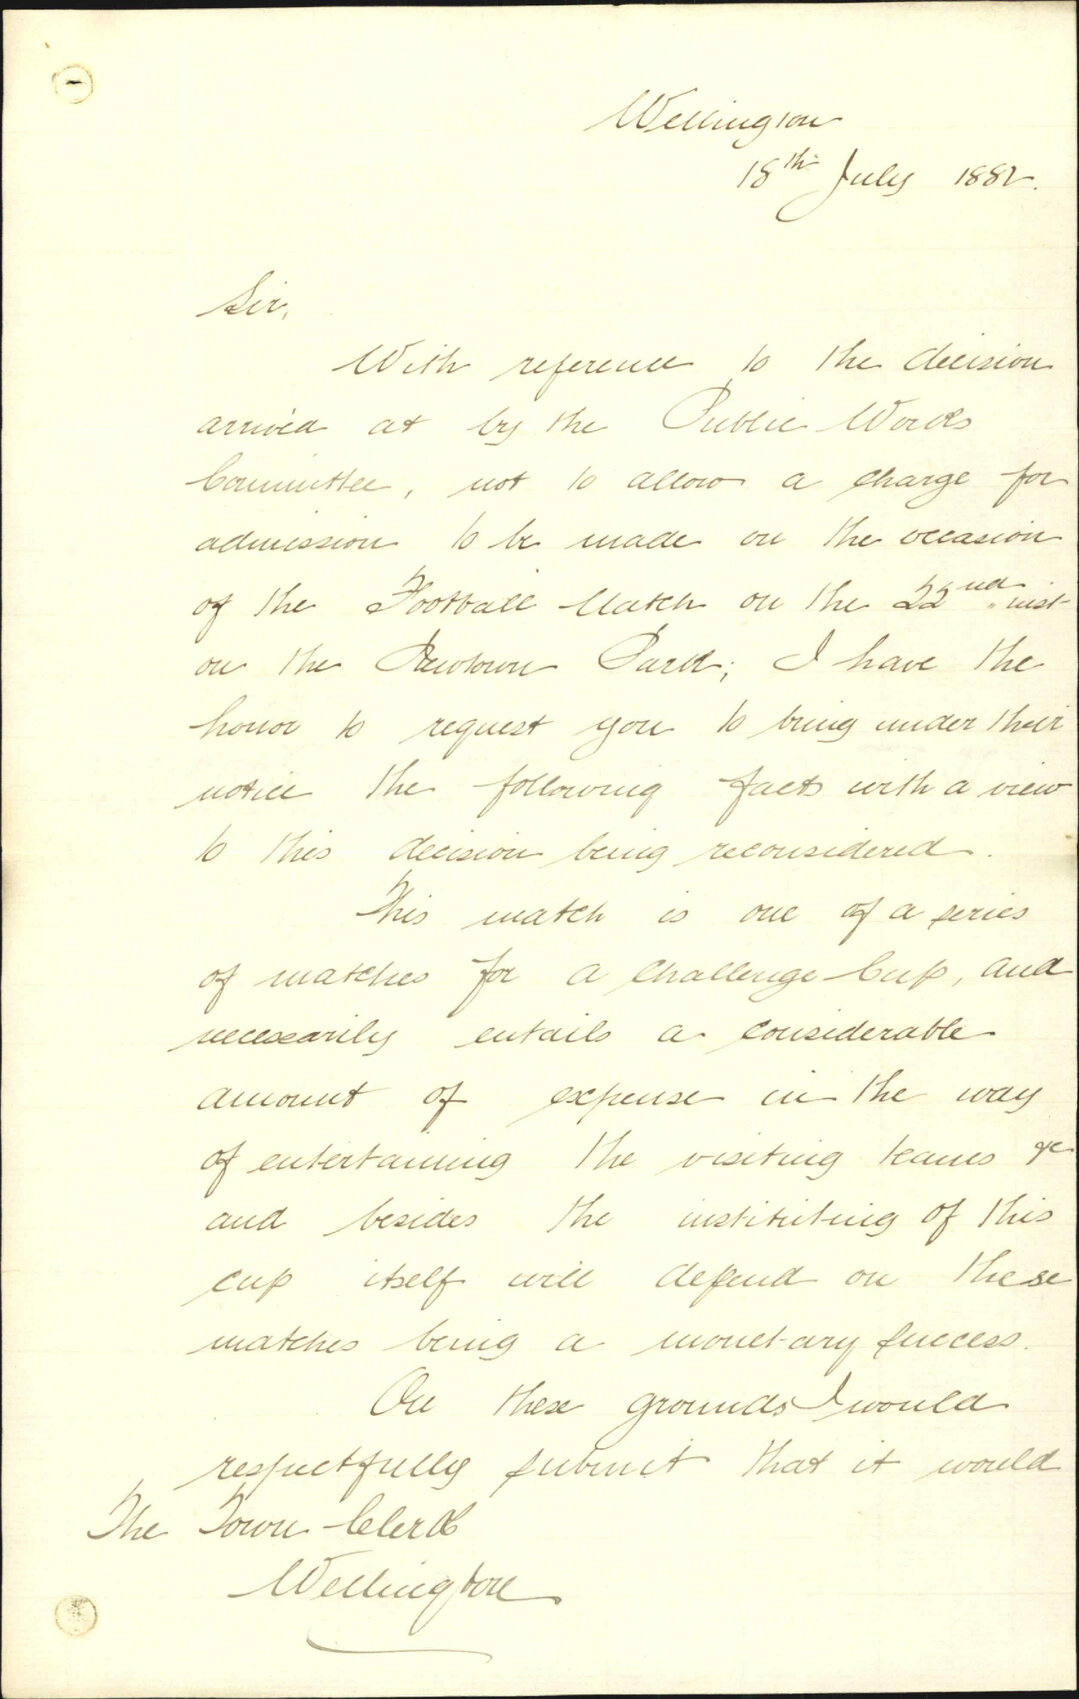 Wellington
18th July 1882.
Sir,
With reference to the decision
arrived at by the Public Works
Committee, not to allow a charge for
admission to be made on the occasion
of the Football Match on the 22nd inst
on the Newtown Park; I have the
honor to request you to bring under their
notice the following facts with a view
to this decision being reconsidered.
This match is one of a series
of matches for a Challenge Cup, and
necessarily entails a considerable
amount of expense in the way
of entertaining the visiting teams &c
and besides the instituting of this
cup itself will depend on these
matches being a monetary success.
On these grounds I would
respectfully submit that it would
The Town Clerk
Wellington